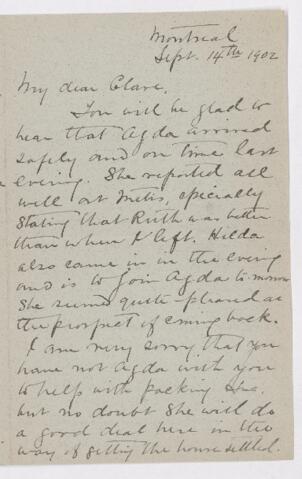 Montreal
Sept. 14th 1902
My dear Clare,
You will be glad to
hear that Agda arrived
safely and on time last
evening. She reported all
well at Metis, specially
stating that Ruth was better
than when I left. Hilda
also came in in the evening
and is to join Agda to-morrow
She seemed quite pleased at
the prospect of coming back.
I am very sorry that you
have not Agda with you
to help with packing &c.
but no doubt she will do
a good deal here in the
way of getting the house settled.